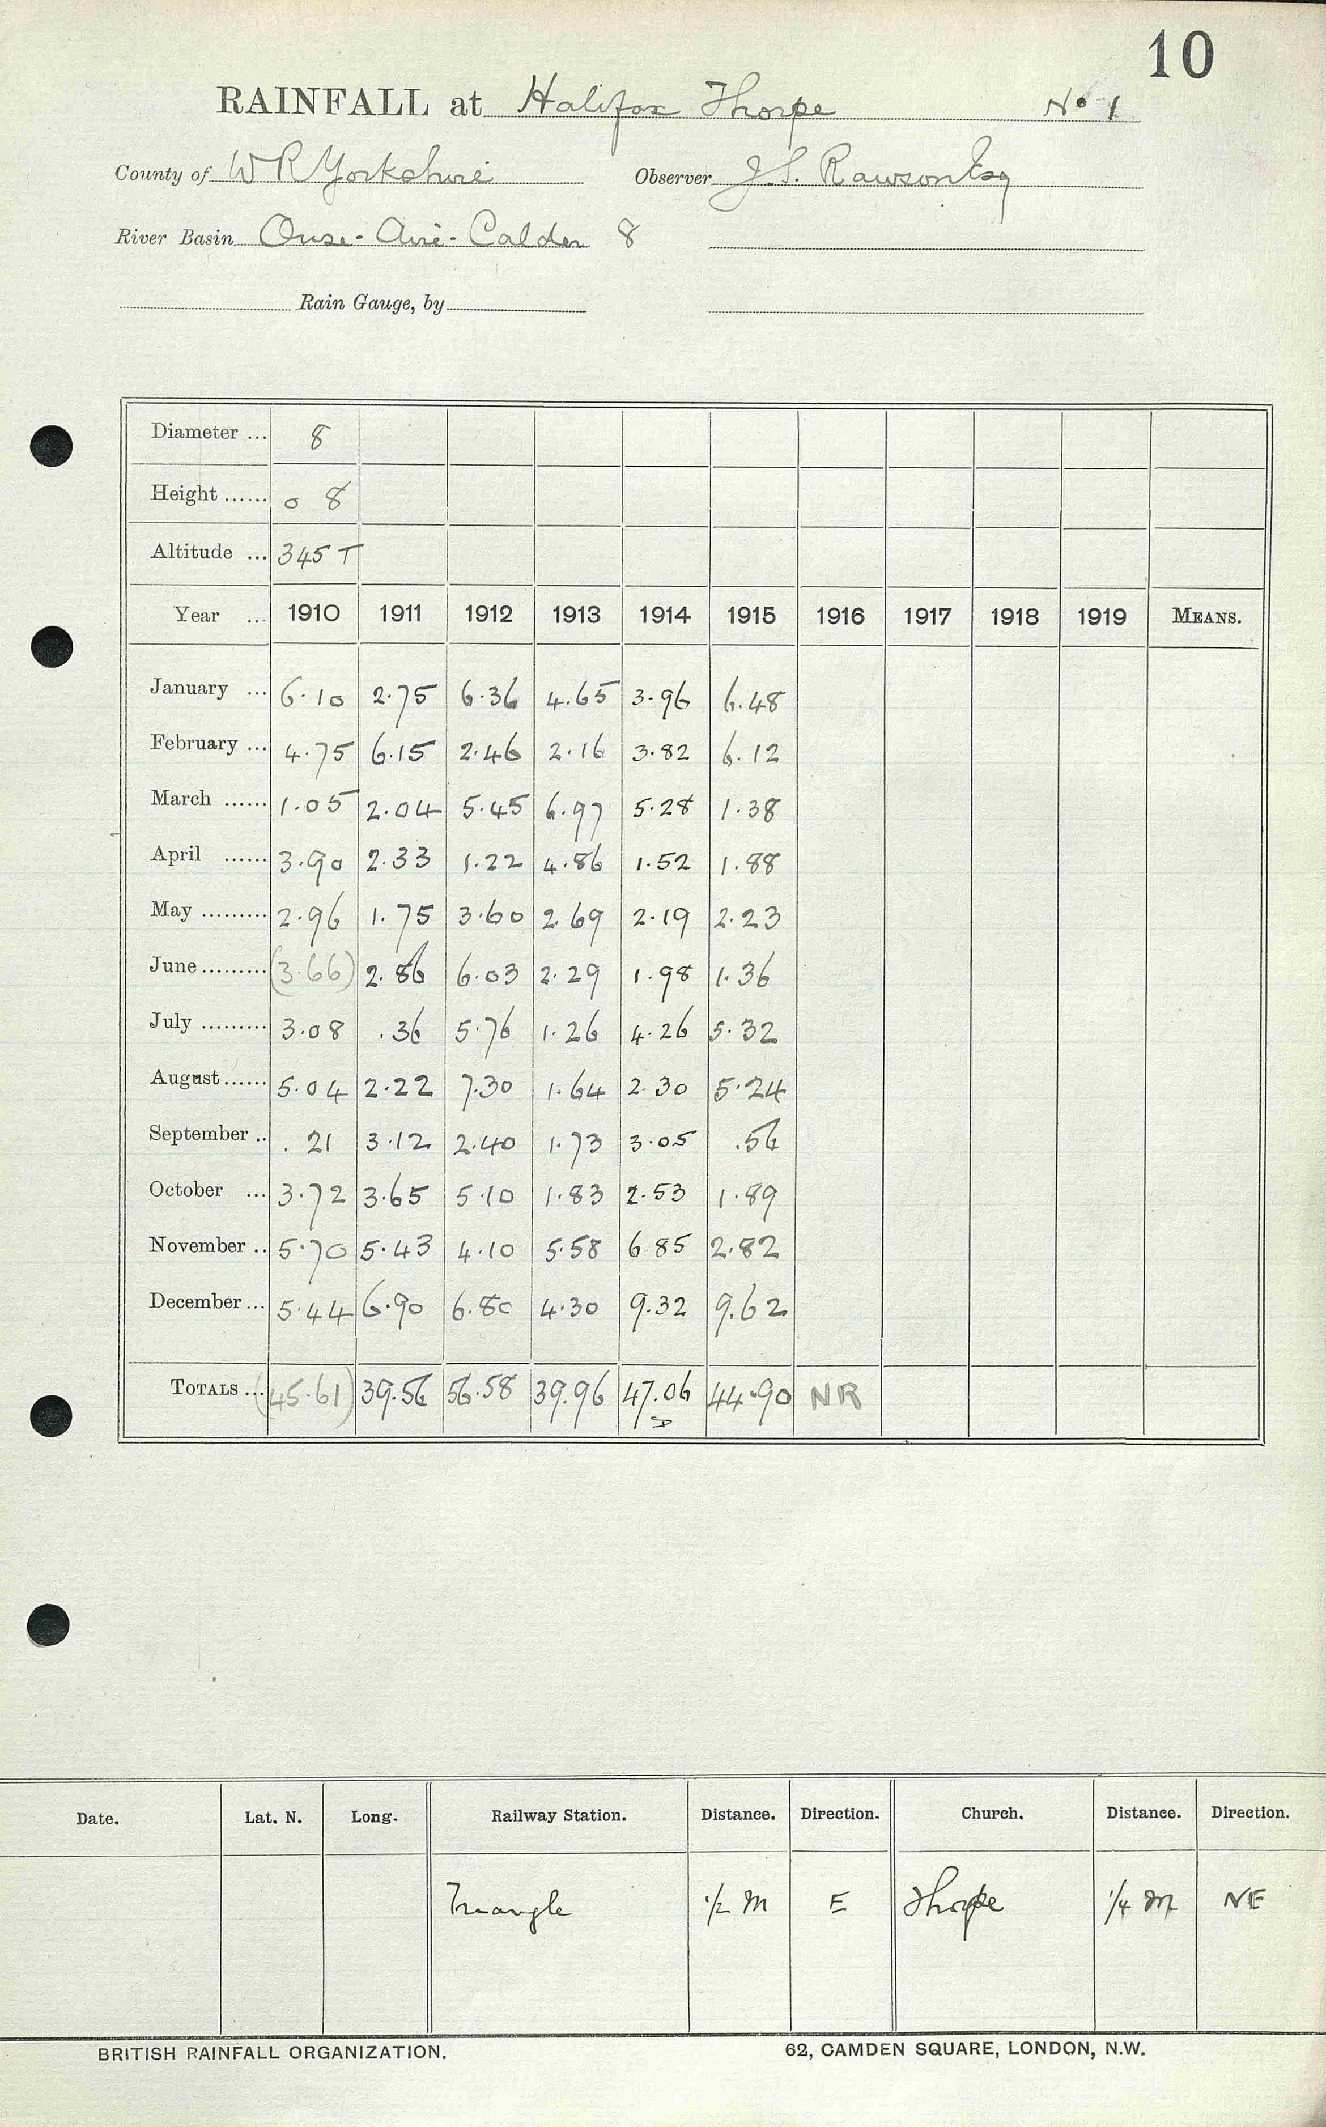 10
RAINFALL at Halifax Thorpe No 1
County of W R Yorkshire Observer J.S. Rawson Esq
River Basin Ouse-Aire-Calder 8
Rain Gauge, by
Diameter ... 8
Height ...... 0 8
Altitude ... 345 T
Year ... 1910 1911 1912 1913 1914 1915 1916 1917 1918 1919 MEANS.
January ... 6.10 2.75 6.36 4.65 3.96 6.48
February ... 4.75 6.15 2.46 2.16 3.82 6.12
March ...... 1.05 2.04 5.45 6.97 5.28 1.38
April ...... 3.90 2.33 1.22 4.86 1.52 1.88
May ......... 2.96 1.75 3.60 2.69 2.19 2.23
June ......... (3.66) 2.86 6.03 2.29 1.98 1.36
July ......... 3.08 .36 5.76 1.26 4.26 5.32
August ...... 5.04 2.22 7.30 1.64 2.30 5.24
September .. .21 3.12 2.40 1.73 3.05 .56
October ... 3.72 3.65 5.10 1.83 2.53 1.89
November .. 5.70 5.43 4.10 5.58 6.85 2.82
December ... 5.44 6.90 6.80 4.30 9.32 9.62
TOTALS ... (45.61) 39.56 56.58 39.96 47.06 44.90 NR
Date. Lat. N. Long. Railway Station. Distance. Direction. Church. Distance. Direction.
Triangle 1/2 M E Thorpe 1/4 M NE
BRITISH RAINFALL ORGANIZATION. 62, CAMDEN SQUARE, LONDON, N.W.